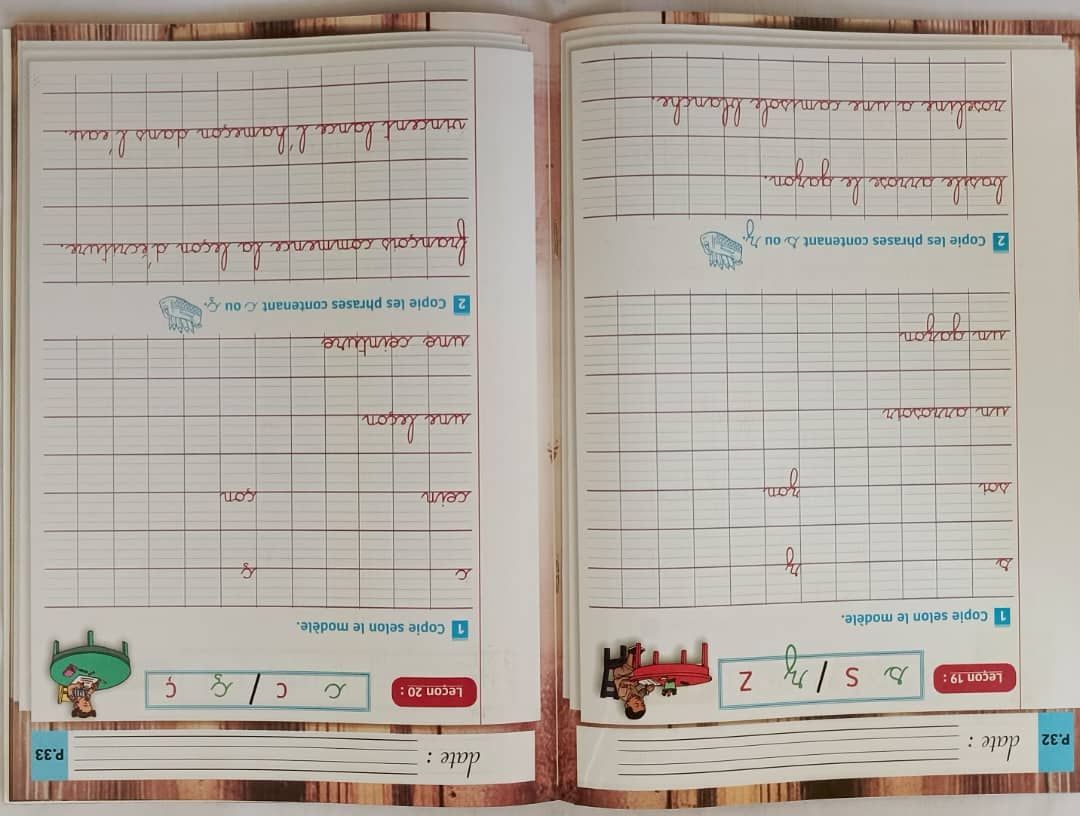 P.32 date :
Leçon 19 : s S / z Z
1 Copie selon le modèle.
s z
soi zon
un arrosoir
un gazon
2 Copie les phrases contenant s ou z.
basile arrose le gazon.
roseline a une camisole blanche.
date : P.33
Leçon 20 : c c / ç ç
1 Copie selon le modèle.
c ç
cein çon
une leçon
une ceinture
2 Copie les phrases contenant c ou ç.
françois commence la leçon d'écriture.
vincent lance l'hameçon dans l'eau.